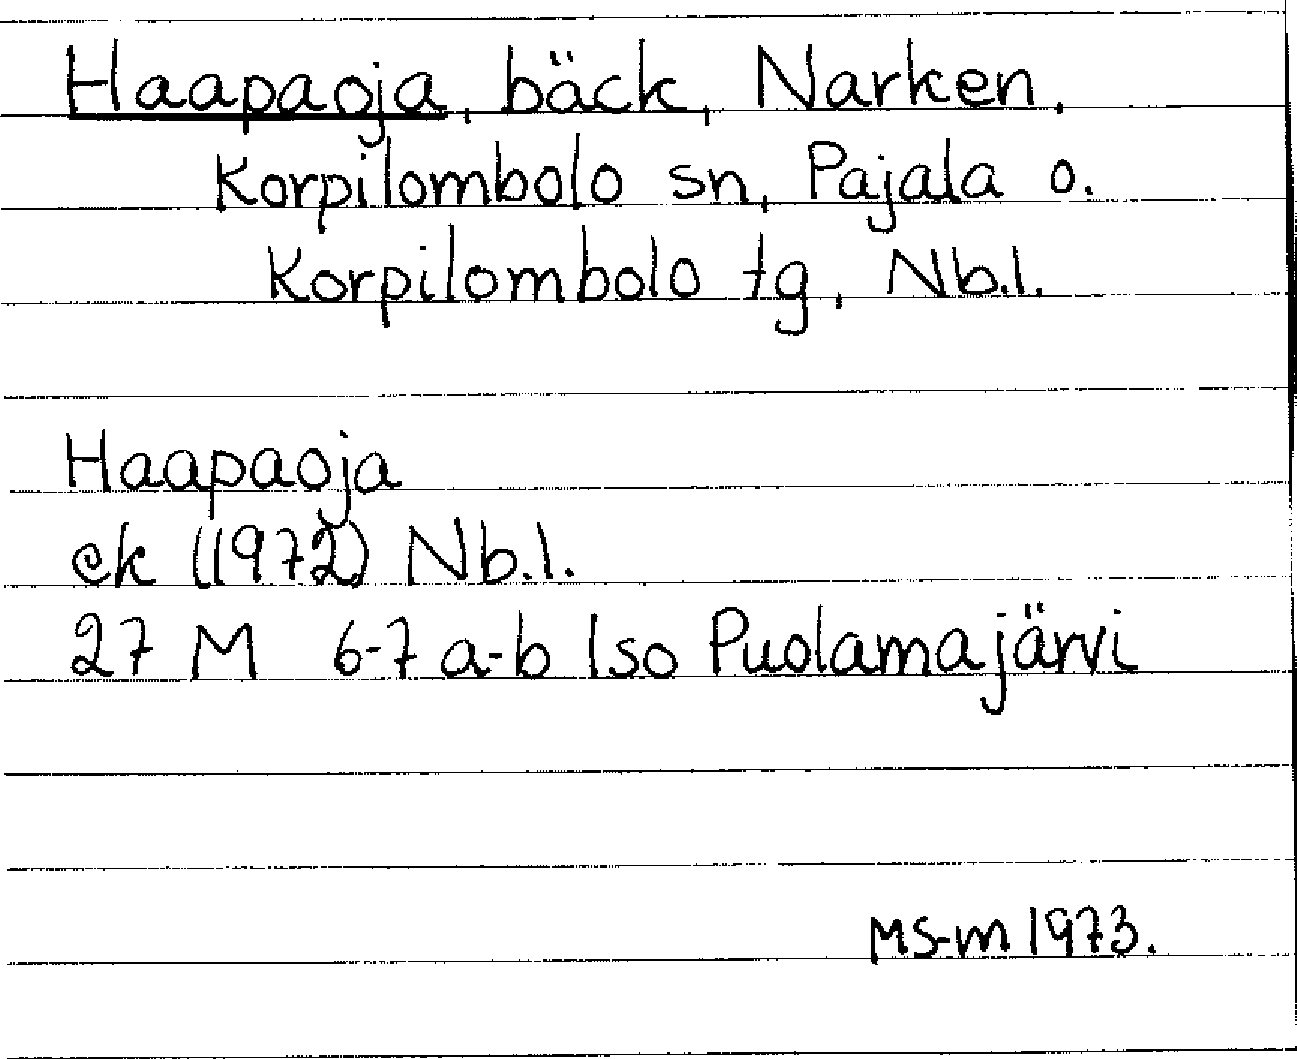 Haapaoja, bäck, Narken,
Korpilombolo sn, Pajala o.
Korpilombolo tg, Nb.l.
Haapaoja
ek (1972) Nb.l.
27 M 6-7 a-b Iso Puolamajärvi
MS-m 1973.